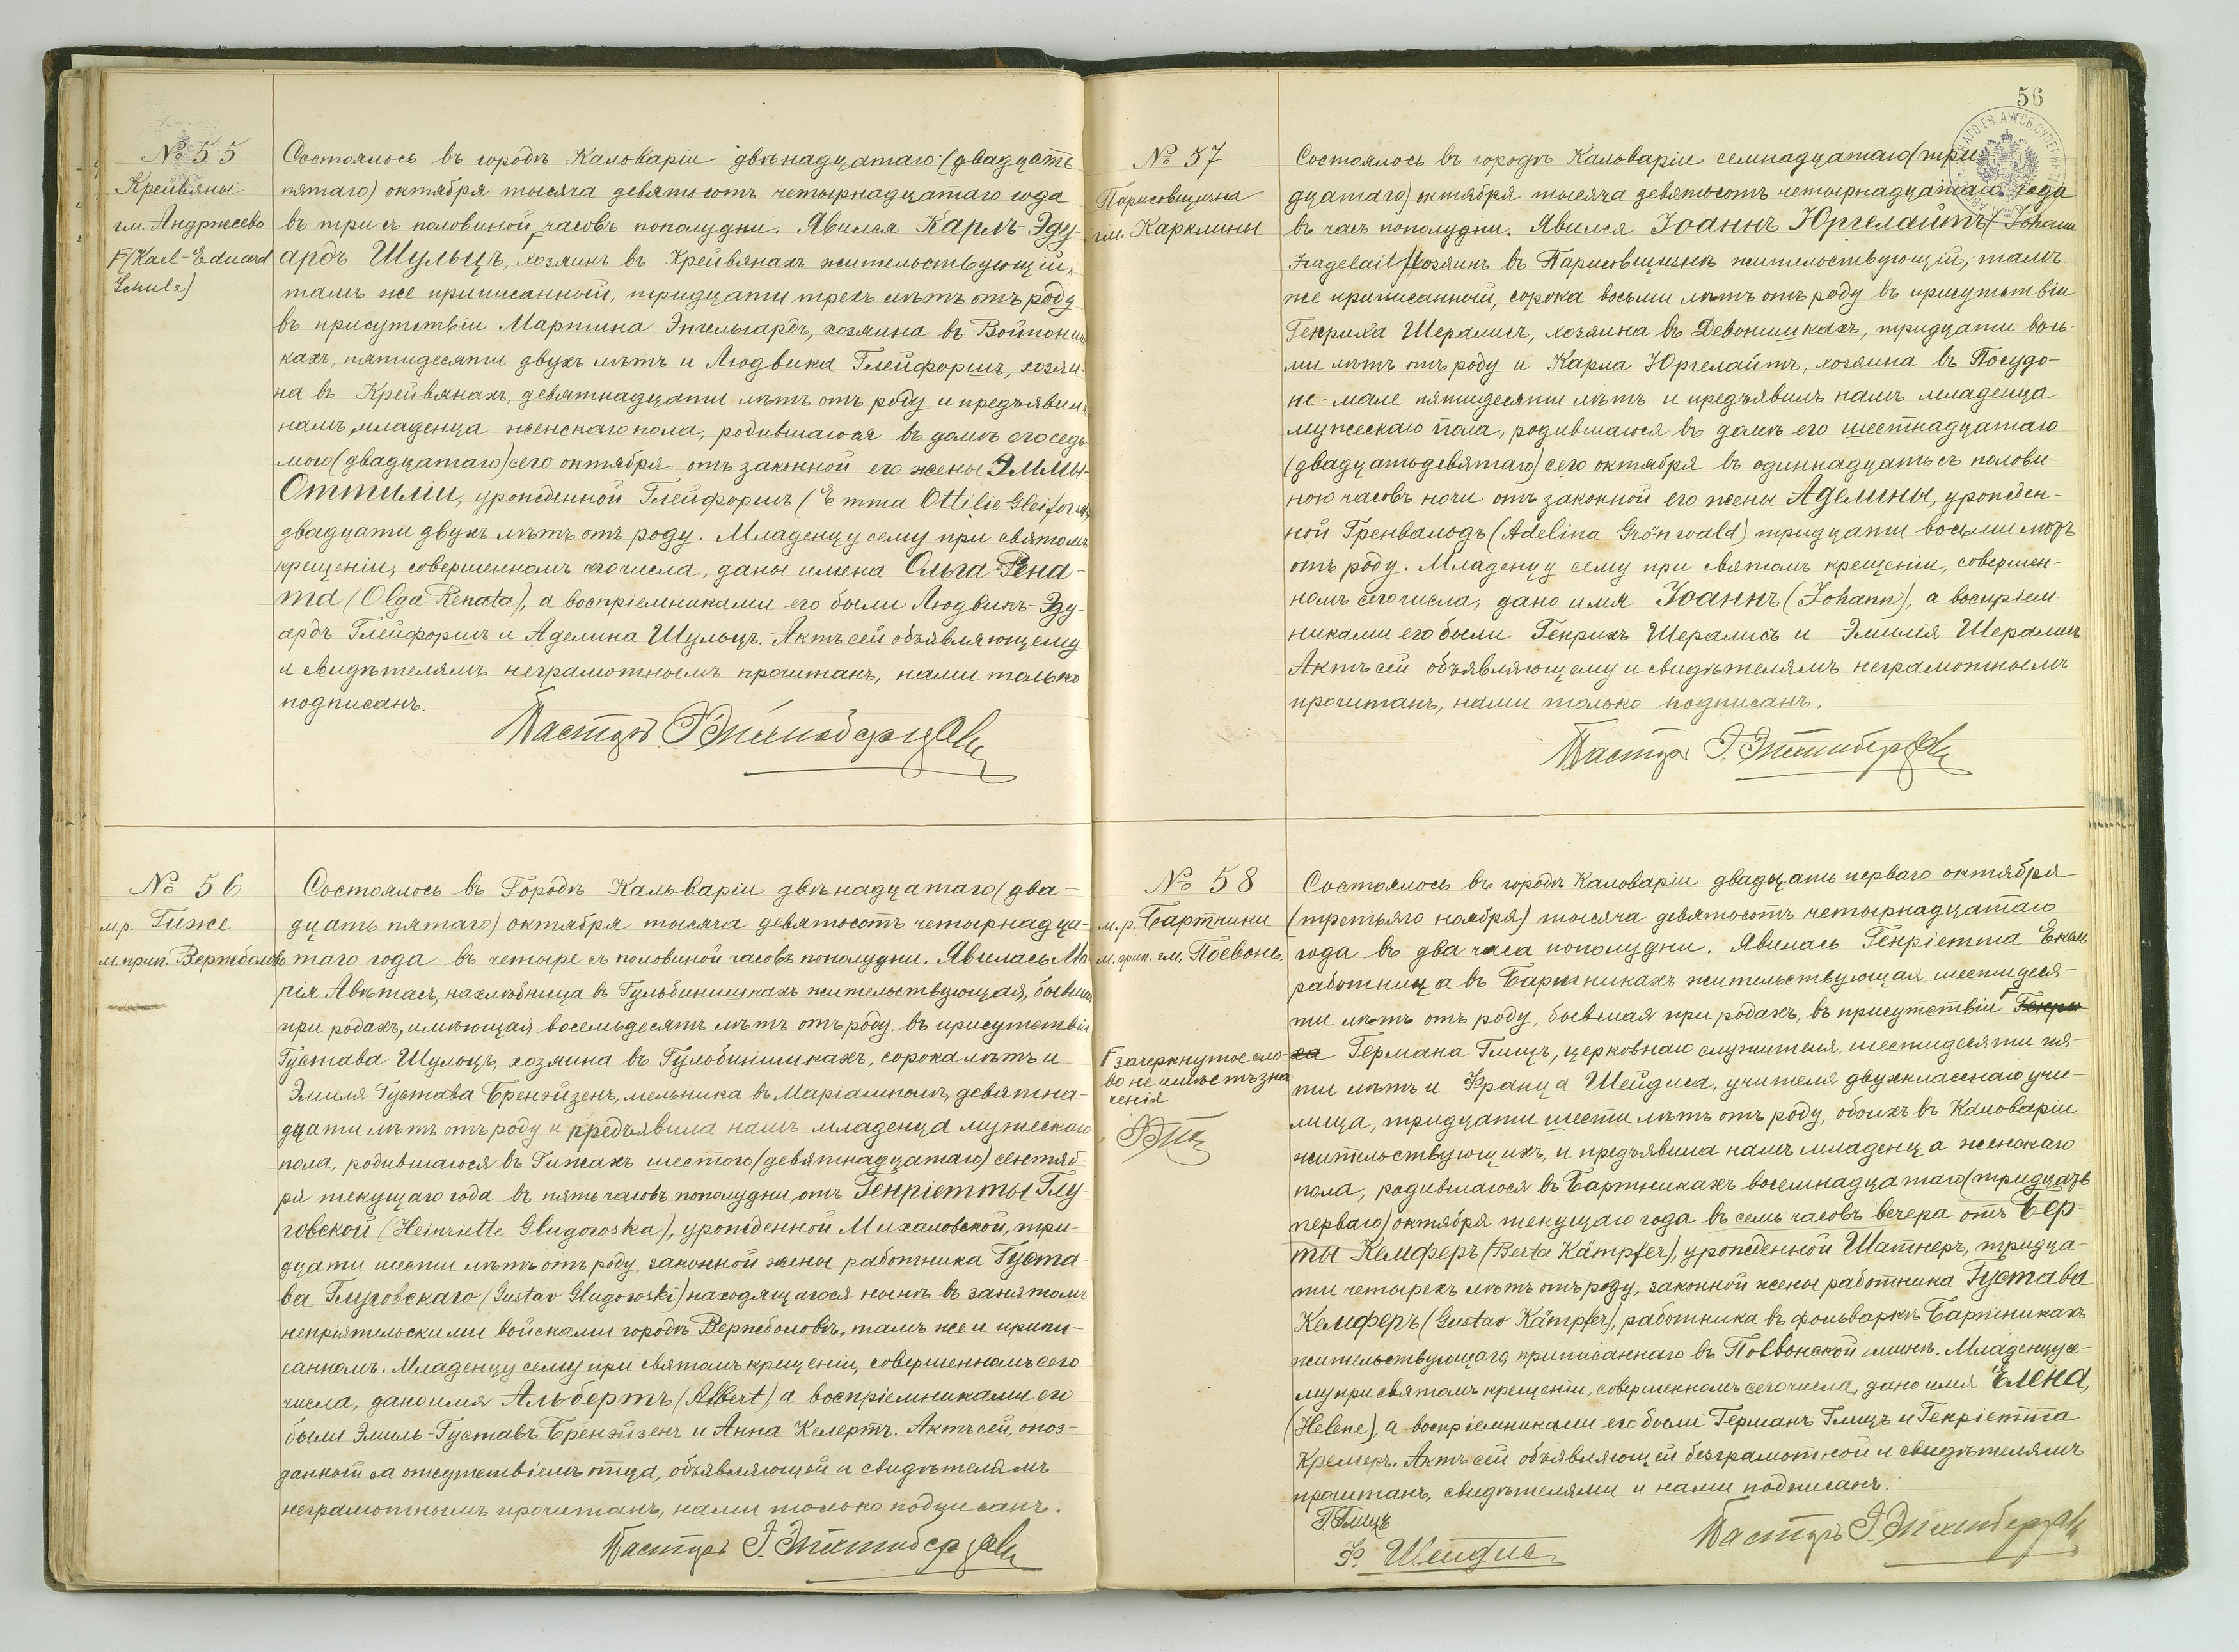 № 55
Крейвяны
гм. Андржеево
(Karl-Eduard
Schulz)
Состоялось въ городѣ Кальваріи двѣнадцатаго (двадцать
пятаго) октября тысяча девятьсотъ четырнадцатаго года
въ три съ половиной часовъ пополудни. Явился Карлъ-Эду-
ардъ Шульцъ, хозяинъ въ Крейвянахъ жительствующій,
тамъ же приписанный, тридцати трехъ лѣтъ отъ роду
въ присутствіи Мартина Энгельгардъ, хозяина въ Войтокиш-
кахъ, пятидесяти двухъ лѣтъ и Людвика Глейфоршъ, хозяи-
на въ Крейвянахъ, девятнадцати лѣтъ отъ роду и предъявилъ
намъ младенца женскаго пола, родившагося въ домѣ его седь-
мого (двадцатаго) сего октября отъ законной его жены Эммы-
Оттиліи, урожденной Глейфоршъ (Emma Ottilie Gleiforsch)
двадцати двухъ лѣтъ отъ роду. Младенцу сему при святомъ
крещеніи, совершенномъ сегочисла, даны имена Ольга-Рена-
та (Olga Renata), а воспріемниками его были Людвикъ-Эду-
ардъ Глейфоршъ и Аделина Шульцъ. Актъ сей объявляющему
и свидѣтелямъ неграмотнымъ прочитанъ, нами только
подписанъ.
Пасторъ
№ 56
мр. Гиже
м. прип. Вержболово
Состоялось въ Городѣ Кальваріи двѣнадцатаго (два-
дцать пятаго) октября тысяча девятьсотъ четырнадца-
таго года въ четыре съ половиной часовъ пополудни. Явилась Ма-
рія Аветасъ, нахлѣбница въ Гульбинишкахъ жительствующая, бывшая
при родахъ, имѣющая восемьдесятъ лѣтъ отъ роду, въ присутствіи
Густава Шульцъ, хозяина въ Гульбинишкахъ, сорока лѣтъ и
Эмиля Густава Бренэйзенъ, мельника въ Маріамполѣ, девятна-
дцати лѣтъ отъ роду и предъявила намъ младенца мужескаго
пола, родившагося въ Гижахъ шестого (девятнадцатаго) сентяб-
ря текущаго года въ пять часовъ пополудни отъ Генріетты Глу-
говской (Heinriette Glugowska), урожденной Михаловской, три-
дцати шести лѣтъ отъ роду, законной жены работника Густа-
ва Глуговскаго (Gustav Glugowski) находящагося нынѣ въ занятомъ
непріятельскими войсками городѣ Вержболовѣ, тамъ же и припи-
саннаго. Младенцу сему при святомъ крещеніи, совершенномъ сего
числа, дано имя Альбертъ (Albert), а воспріемниками его
были Эмиль-Густавъ Бренэйзенъ и Анна Келертъ. Актъ сей, опоз-
данный за отсутствіемъ отца, объявляющей и свидѣтелямъ
неграмотнымъ прочитанъ, нами только подписанъ.
Пасторъ
56
№ 57
Парисовщизна
гм. Карклины
Состоялось въ городѣ Кальваріи семнадцатаго (три-
дцатаго) октября тысяча девятьсотъ четырнадцатаго года
въ часъ пополудни. Явился Іоаннъ Юргелайтъ (Johann
Jurgelait) хозяинъ въ Парисовщизнѣ жительствующій, тамъ
же приписанный, сорока восьми лѣтъ отъ роду въ присутствіи
Генриха Шералисъ, хозяина въ Девонишкахъ, тридцати вось-
ми лѣтъ отъ роду и Карла Юргелайтъ, хозяина въ Посудо-
не-мале пятидесяти лѣтъ и предъявилъ намъ младенца
мужескаго пола, родившагося въ домѣ его шестнадцатаго
(двадцатьдевятаго) сего октября въ одиннадцать съ полови-
ною часовъ ночи отъ законной его жены Аделины, урожден-
ной Гренвальдъ (Adelina Grönwald) тридцати восьми лѣтъ
отъ роду. Младенцу сему при святомъ крещеніи, совершен-
номъ сегочисла, дано имя Іоаннъ (Johann), а воспріем-
никами его были Генрихъ Шералисъ и Эмилія Шералисъ
Актъ сей объявляющему и свидѣтелямъ неграмотнымъ
прочитанъ, нами только подписанъ.
Пасторъ
№ 58
м. р. Бартники
м. прип. гм. Поевонь.
зачеркнутое сло-
во не имѣетъ зна
ченія
Состоялось въ городѣ Кальваріи двадцать перваго октября
(третьяго ноября) тысяча девятьсотъ четырнадцатаго
года въ два часа пополудни. Явилась Генріетта Екель
работница въ Бартникахъ жительствующая, шестидеся-
ти лѣтъ отъ роду, бывшая при родахъ, въ присутствіи Генри
ха Германа Глицъ, церковнаго служителя, шестидесяти пя-
ти лѣтъ и Франца Шейдиса, учителя двухкласснаго учи-
лища, тридцати шести лѣтъ отъ роду, обоихъ въ Кальваріи
жительствующихъ, и предъявила намъ младенца женскаго
пола, родившагося въ Бартникахъ восемнадцатаго (тридцать
перваго) октября текущаго года въ семь часовъ вечера отъ Бер-
ты Кемферъ (Berta Kämpfer), урожденной Шатнеръ, тридца-
ти четырехъ лѣтъ отъ роду, законной жены работника Густава
Кемферъ (Gustav Kämpfer), работника въ фольваркѣ Бартникахъ
жительствующаго, приписаннаго въ Поевонской гминѣ. Младенцу се-
му при святомъ крещеніи, совершенномъ сегочисла, дано имя Елена,
(Helene), а воспріемниками его были Германъ Глицъ и Генріетта
Кремеръ. Актъ сей объявляющей безграмотной и свидѣтелямъ
прочитанъ, свидѣтелями и нами подписанъ.
Г. Глицъ
Ф. Шейдис
Пасторъ